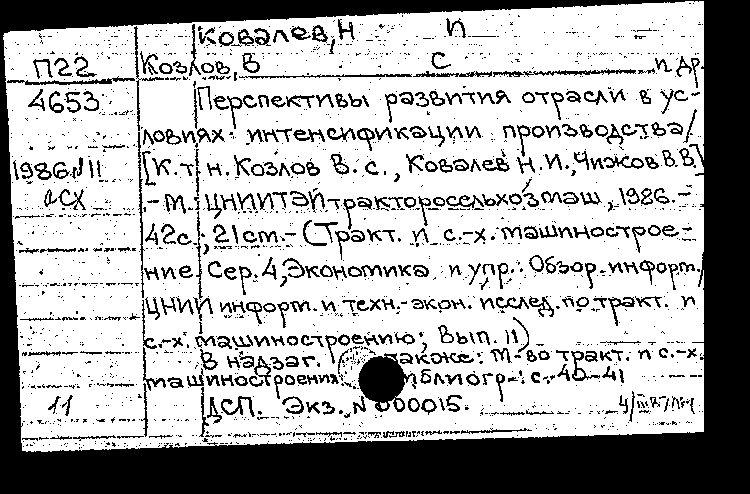 Ковалев, Н П
П22 Козлов, В С и др.
4653 Перспективы развития отрасли в ус-
ловиях интенсификации производства/
1986 N11 [К.т.н. Козлов В.С., Ковалев Н.И., Чижов В.В]
ОСХ .-М.: ЦНИИТЭИтракторосельхозмаш, 1986.-
42с.; 21cm.- (Тракт. и с.-х. машинострое-
ние. Сер. 4, Экономика и упр.: Обзор. информ./
ЦНИИ информ. и техн.-экон. исслед. по тракт. и
с.-х. машиностроению; Вып. 11)
В надзаг. также: М-во тракт. и с.-х.
машиностроения. Библиогр.: с. 40-41
11 ДСП. Экз. N 000015.